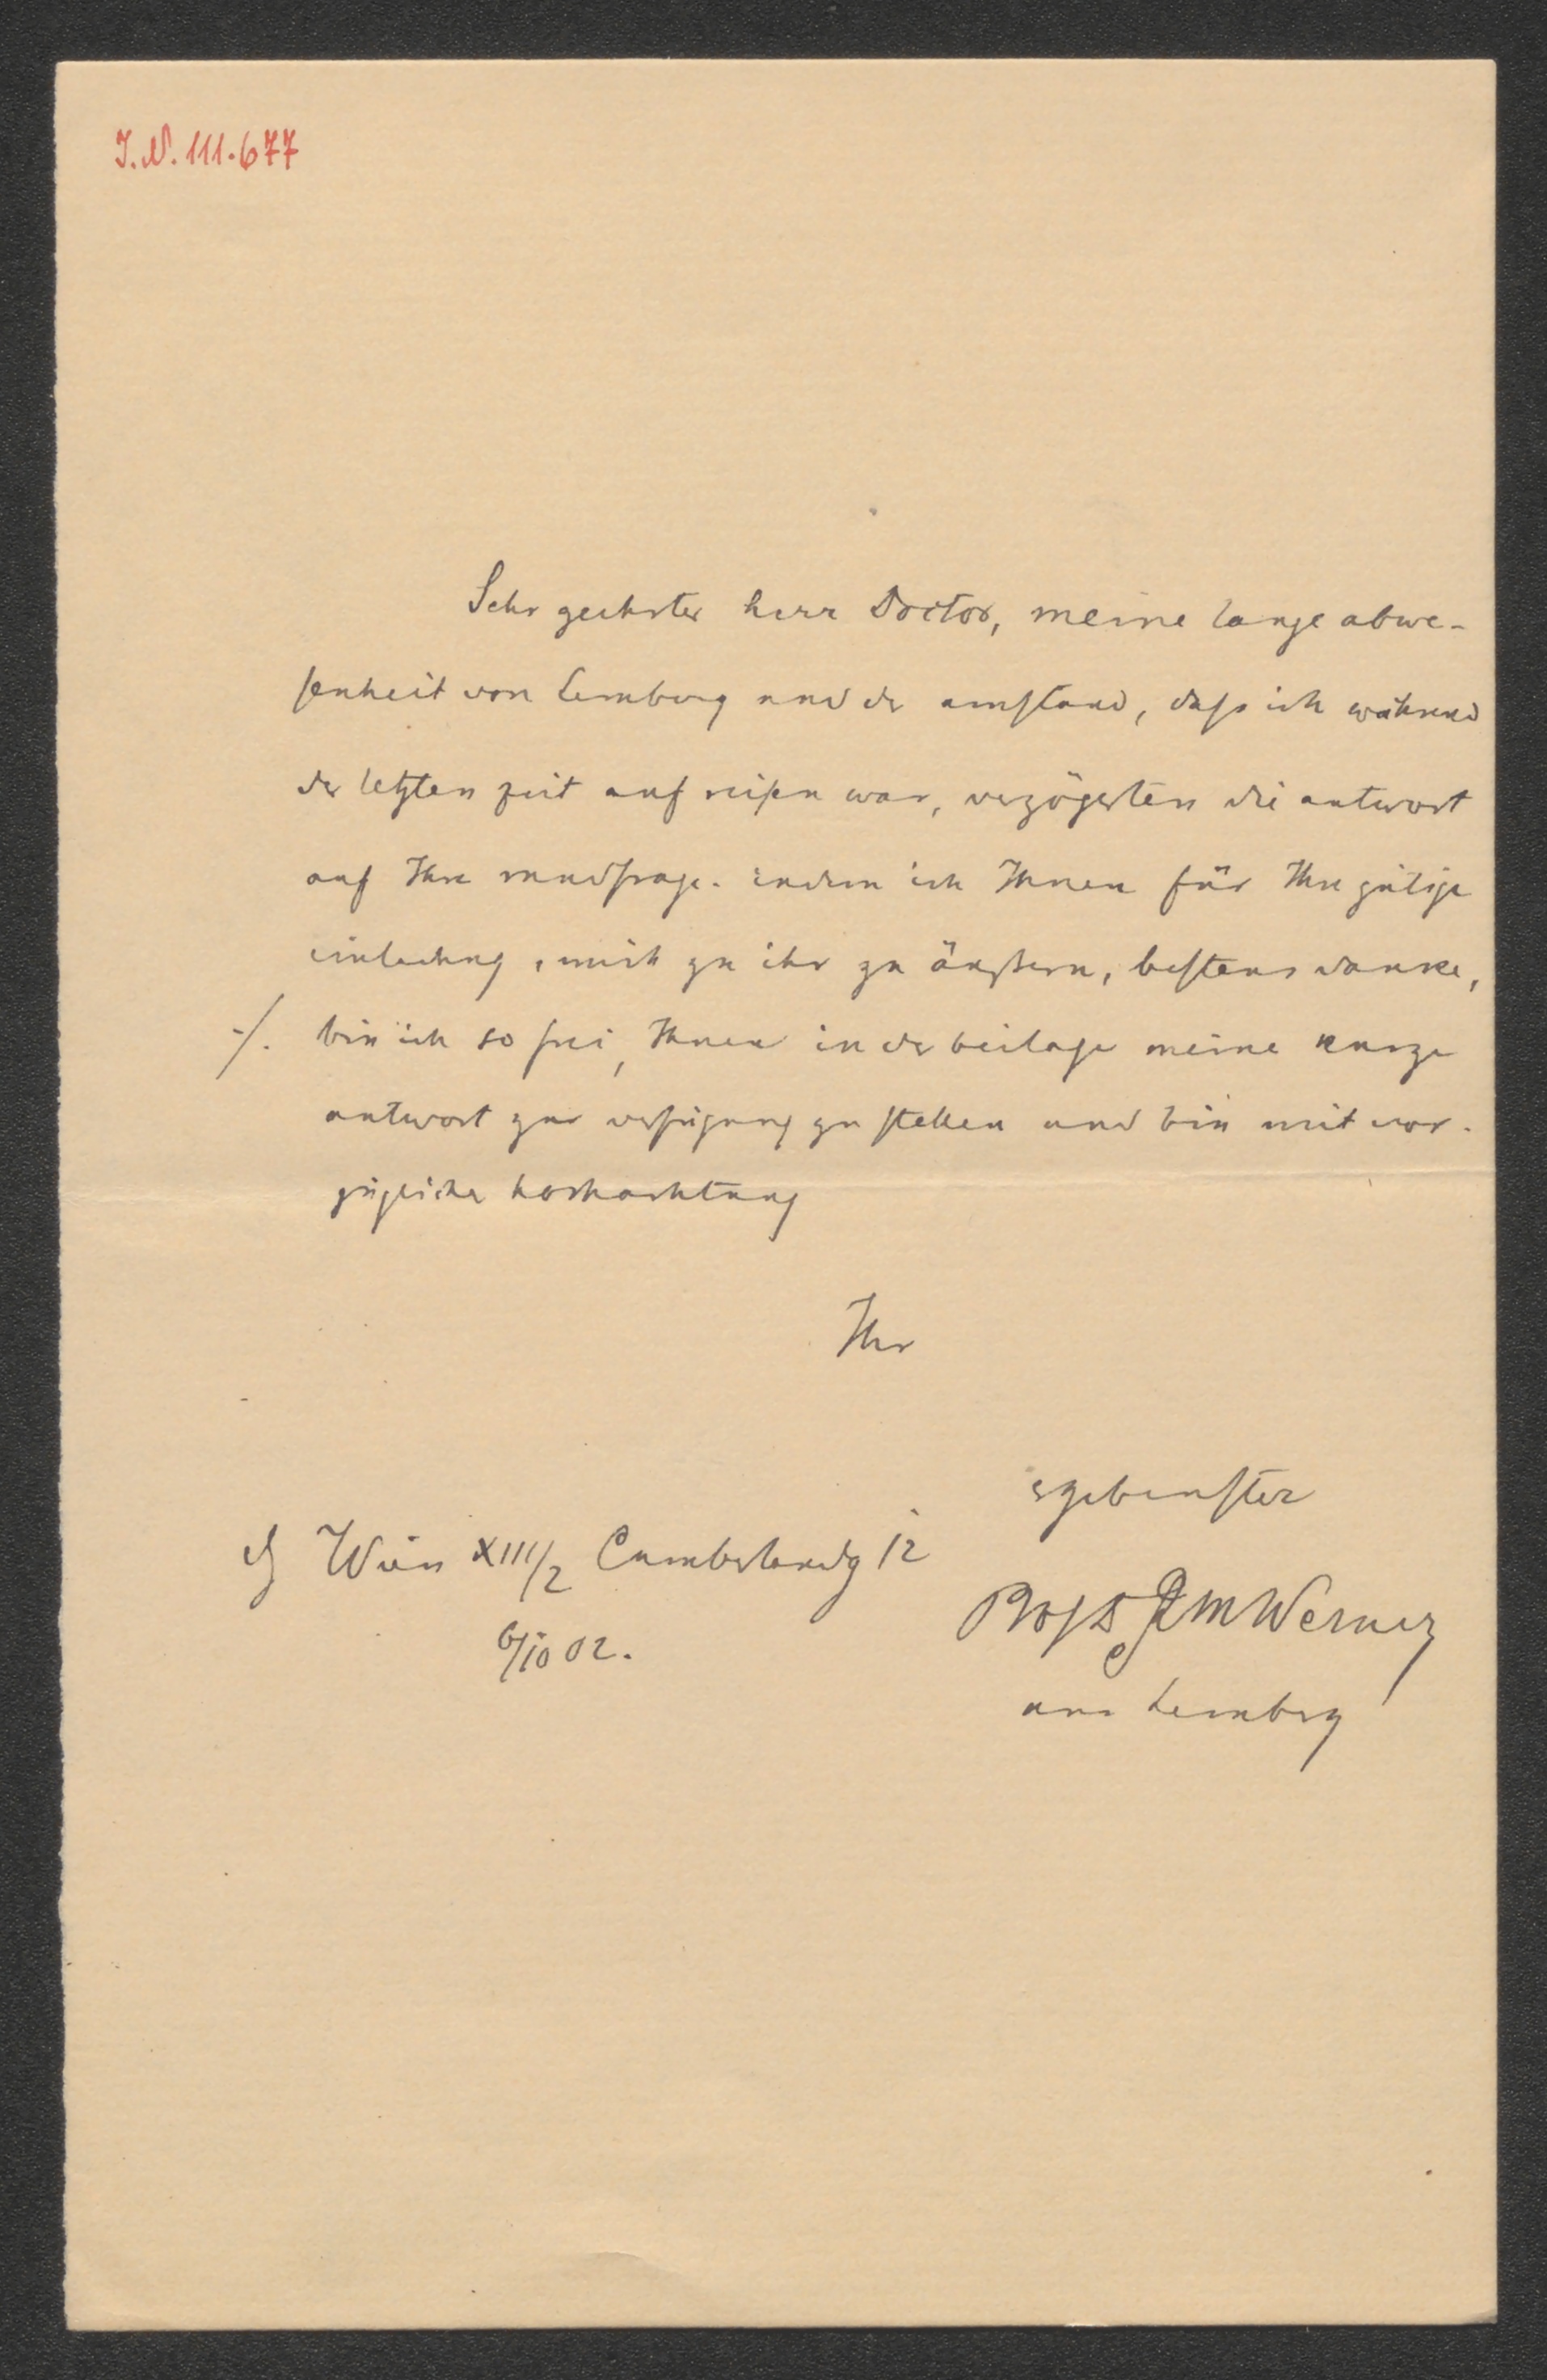 I.N. 111.677
Sehr geehrter herr Doctor, meine lange abwe-
senheit von Lemberg und der umstand, dass ich während
der letzten zeit auf reisen war, verzögerten die antwort
auf Ihre rundfrage. indem ich Ihnen für Ihre gütige
einladung, mich zu ihr zu äussern, bestens danke,
./. bin ich so frei, Ihnen in der beilage meine kurze
antwort zur verfügung zu stellen und bin mit vor-
züglicher hochachtung
Ihr
ergebenster
Wien XIII/2 Cumberlandg 12
Prof D RM Werner
6/10 02.
aus Lemberg